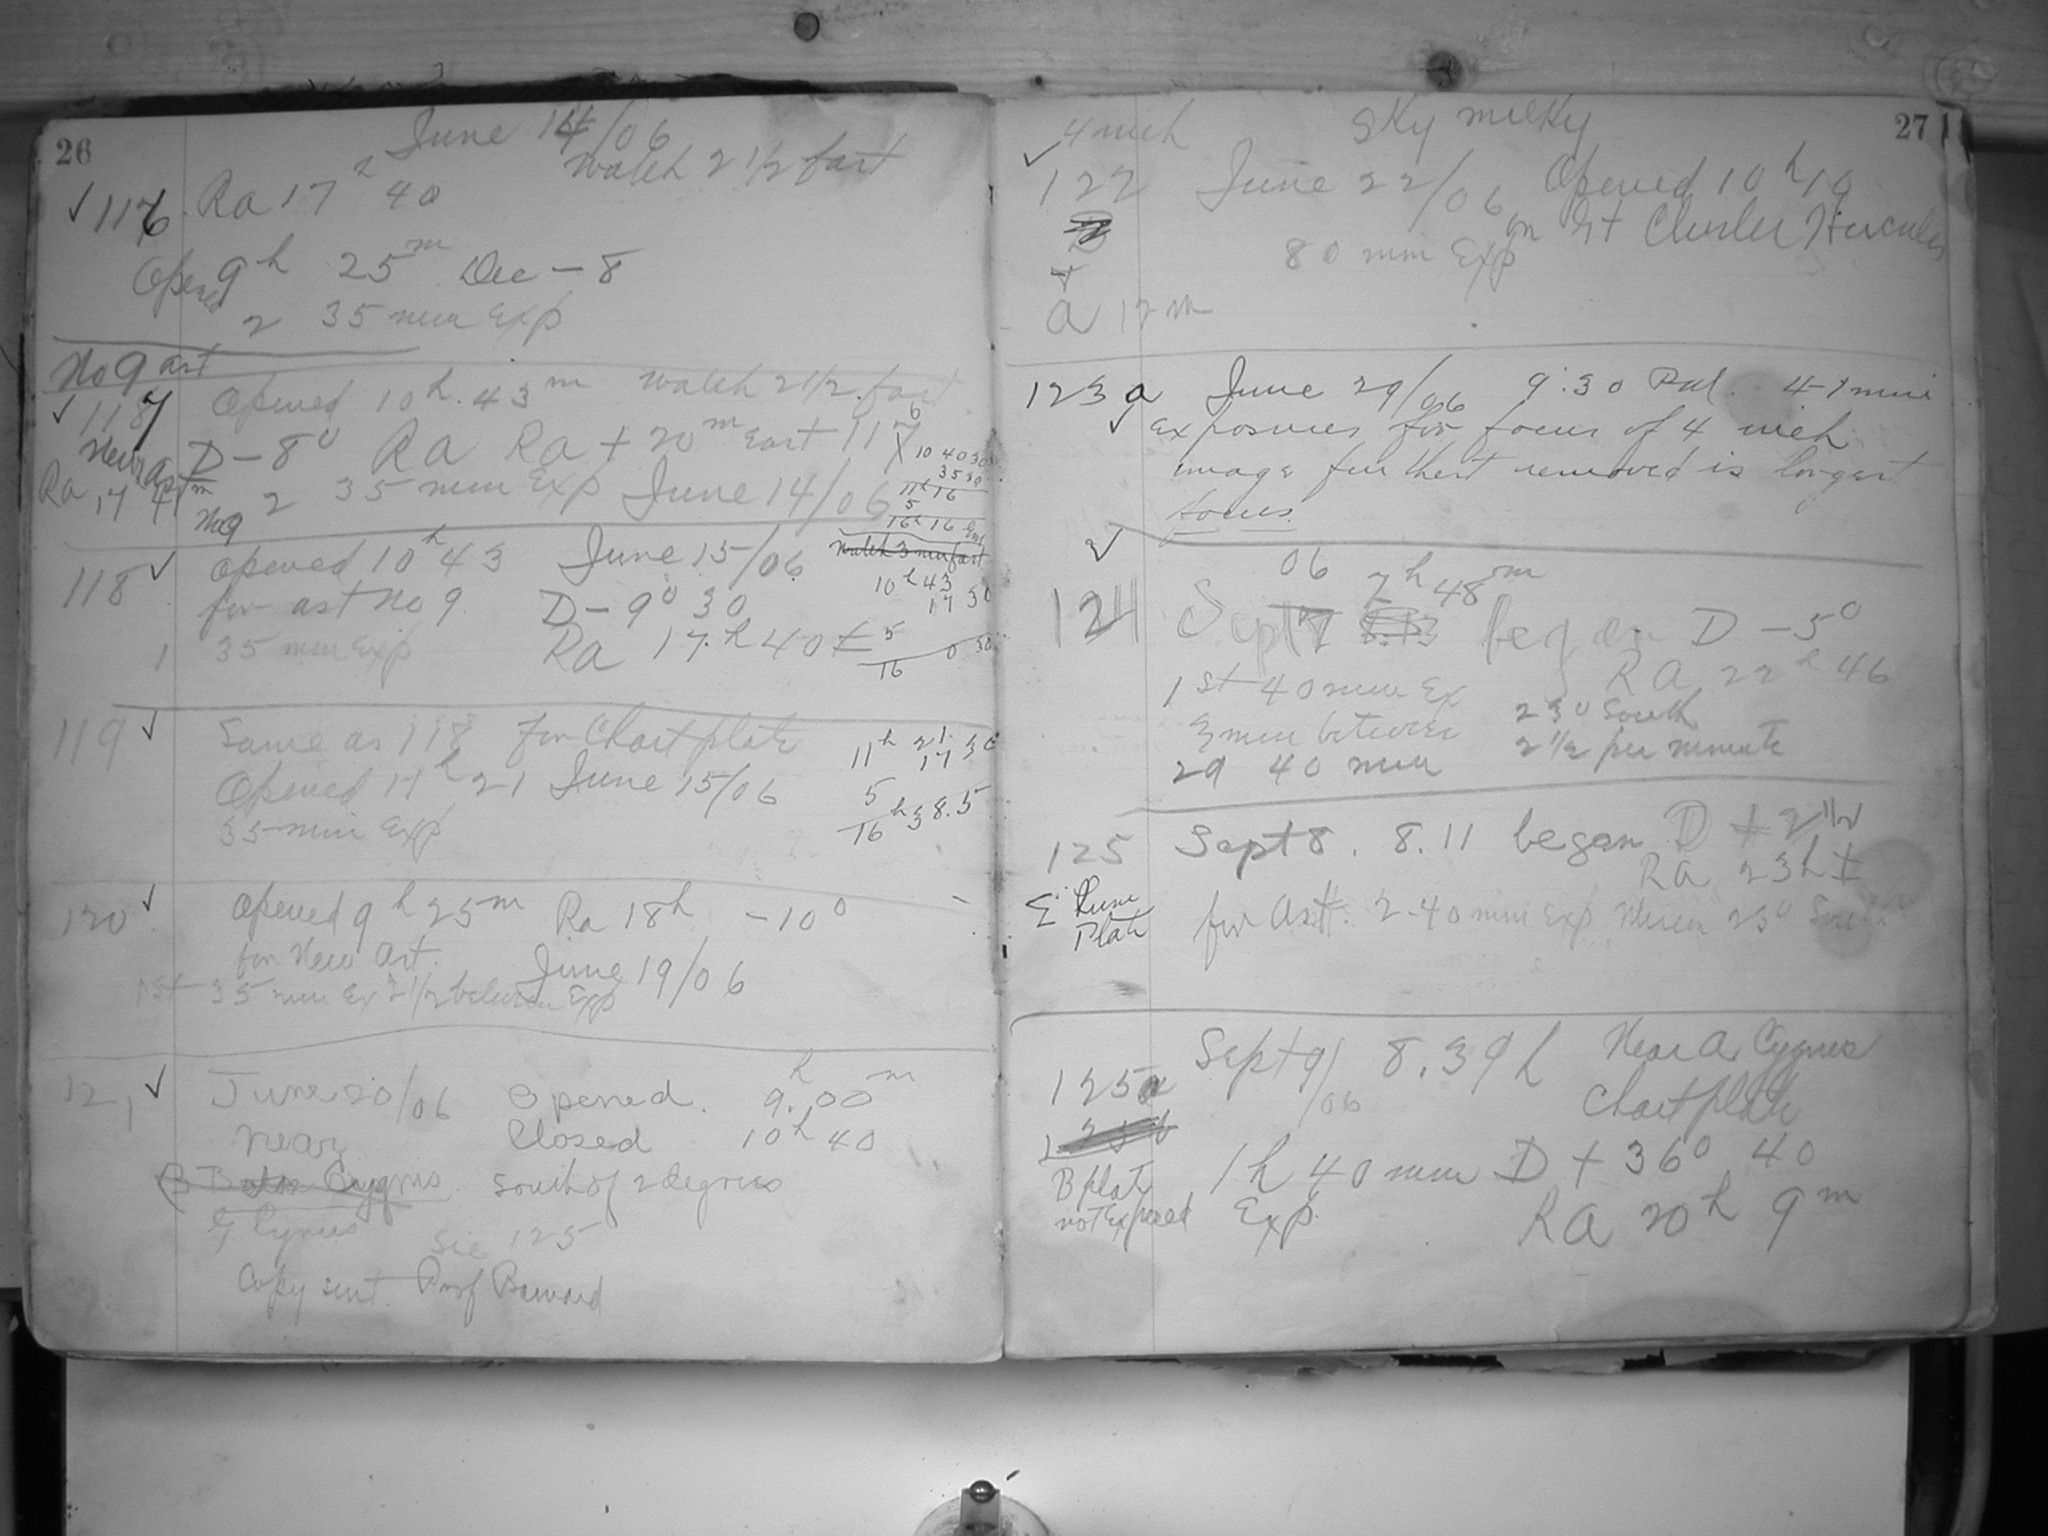 26
June 14/06
Watch 2 1/2 fast
✓ 116 Ra 17 h 40
Opened 9h 25m Dec - 8
2 35 min Exp
No 9 ast
✓ 117 Opened 10h. 43m Watch 2 1/2 fast
New ast D - 8° Ra Ra + 20m East 116
Ra 17 41m 2 35 min Exp June 14/06
No 9
10 40 30
35 30
11h 16
5
16h 16
118 ✓ Opened 10h 43 June 15/06
Watch 3 min fast
for ast No 9. D - 9° 30
10h 43
17 30
1 35 min Exp Ra 17.h 40 ±
5
16 0 30
119 ✓ Same as 118 for Chart plate
Opened 11h 21 June 15/06
35 min Exp
11h 21.
17 30
5
16h 38.5
120 ✓ Opened 9h 25m Ra 18h - 10°
for New Ast.
June 19/06
1st 35 min Ex 2 1/2 between Exp
121 ✓ June 20/06 Opened. 9.h 00m
near Closed 10h 40
Cygnus South of 2 degrees
Cygnus
See 125
Copy sent. Prof Barnard
27
4 inch Sky milky
✓ 122 June 22/06 Opened 10h 10
on Gt Cluster Hercules
80 min Exp
a 12 in
123 a June 29/06 9:30 P.M. 4-1 min
✓ exposures for focus of 4 inch
image furthest removed is longest
focus.
✓
06 7h 48m
124 Sept 7 began D - 5°
RA 22h 46
1st 40 min Ex
3 min between 23° South
2d 40 min 2 1/2 per minute
125 Sept 8. 8.11 began D + 2 1/2
Ra 23h ±
Plate for Ast. 2-40 min Exp 23° South
125a Sept 9/06 8.39h Near a Cygnus
Chart plate
B plate 1h 40 min D + 36° 40
not Exposed Exp. RA 20h 9m